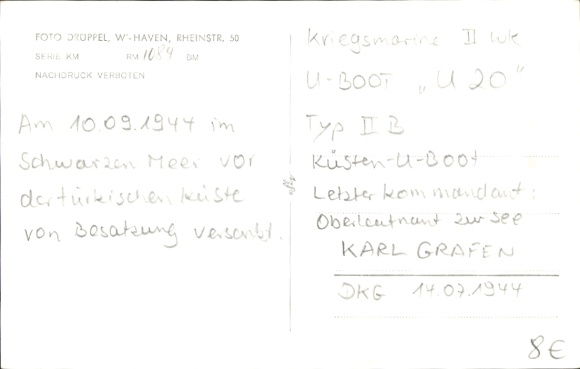 FOTO DRÜPPEL, W'-HAVEN, RHEINSTR. 50
SERIE KM RM 1684 DM
NACHDRUCK VERBOTEN
Am 10.09.1944 im
Schwarzen Meer vor
der türkischen Küste
von Besatzung versenkt.
Kriegsmarine II WK
U-BOOT „U 20"
Typ II B
Küsten-U-Boot
Letzter Kommandant:
Oberleutnant zur See
KARL GRAFEN
DKG 14.07.1944
8 €